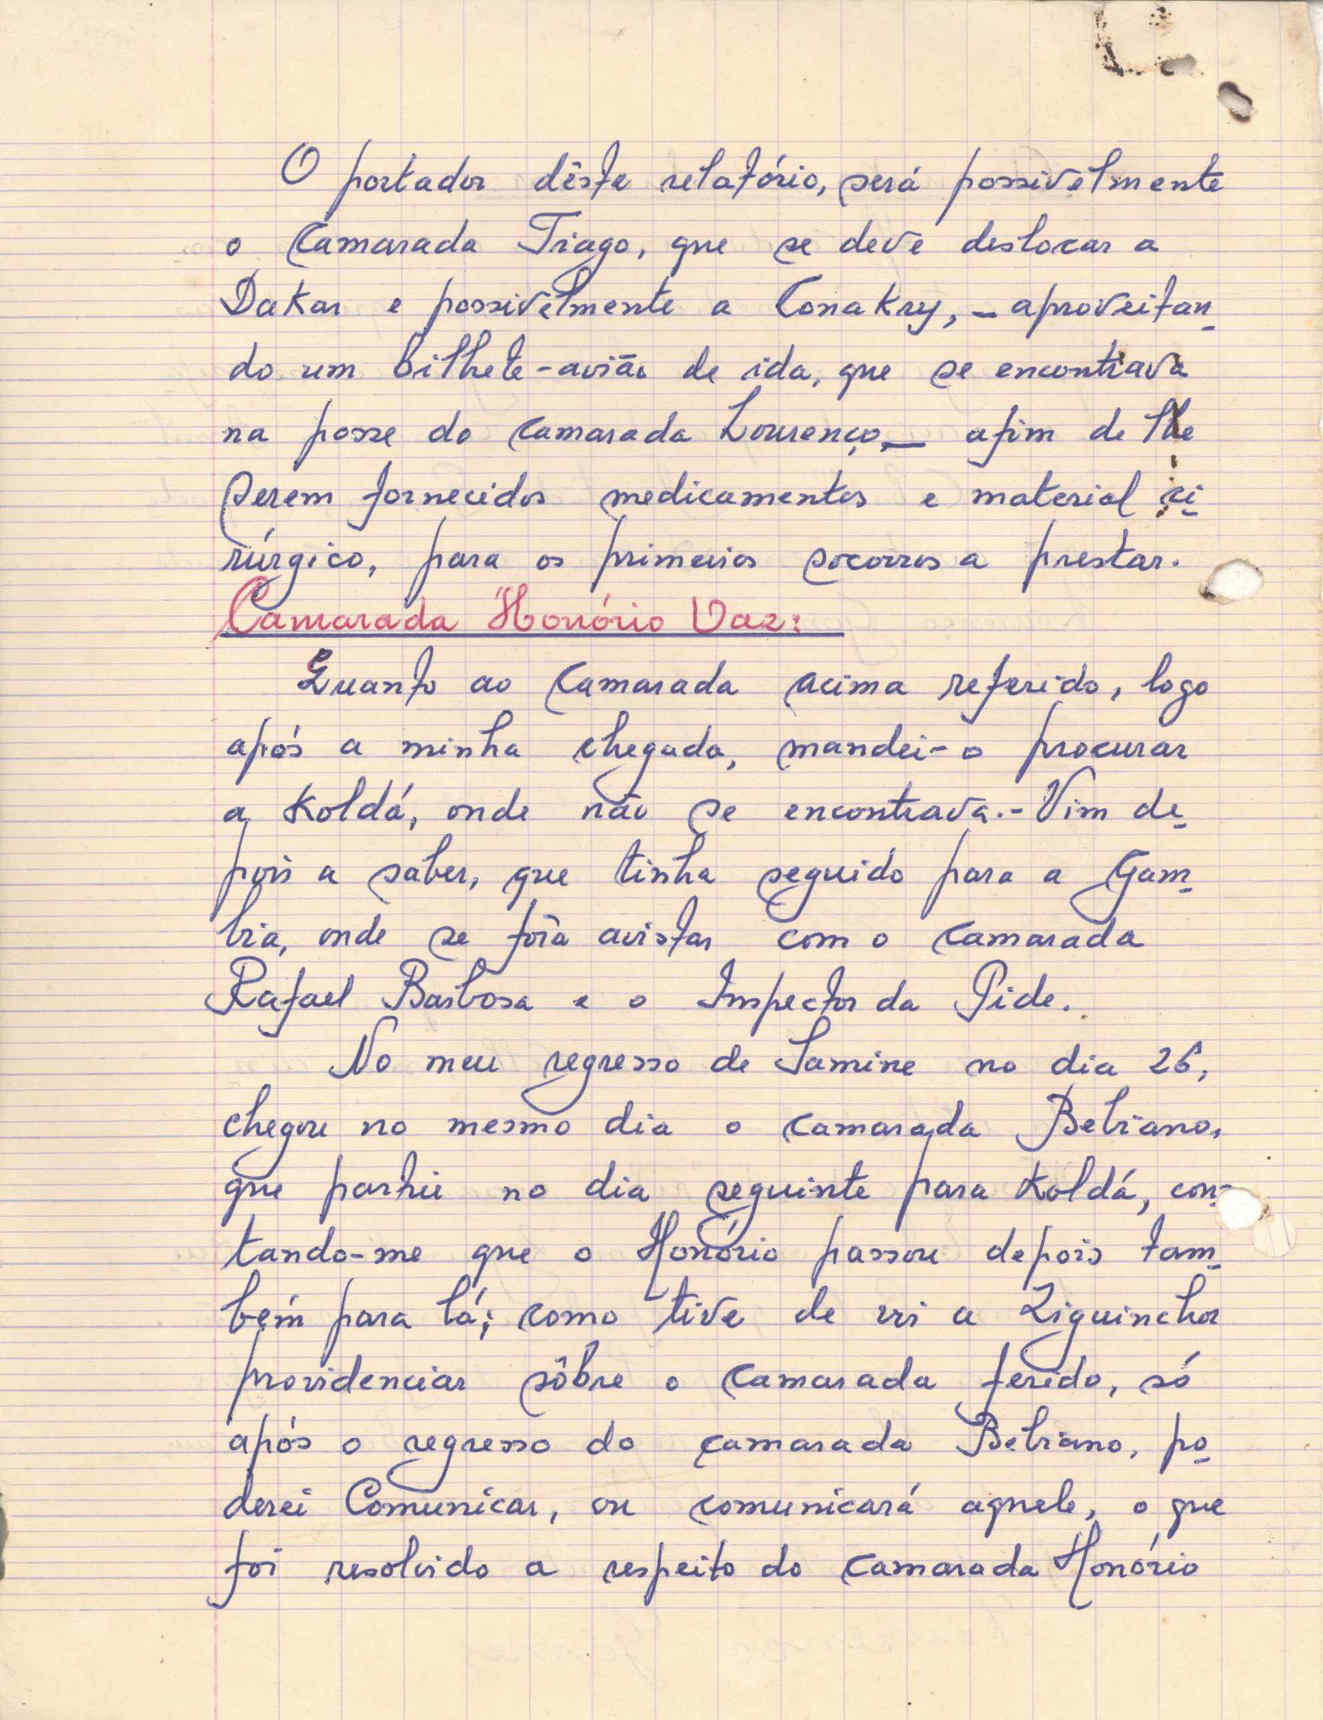 O portador dêste relatório, será possivelmente
o Camarada Tiago, que se deve deslocar a
Dakar e possivelmente a Conakry, – aproveitan-
do um bilhete-avião de ida, que se encontrava
na posse do Camarada Lourenço, – afim de lhe
serem fornecidos medicamentos e material ci-
rúrgico, para os primeiros socorros a prestar.
Camarada Honório Vaz:
Quanto ao Camarada acima referido, logo
após a minha chegada, mandei-o procurar
a Koldá, onde não se encontrava.- Vim de-
pois a saber, que tinha seguido para a Gam-
bia, onde se fôra avistar com o Camarada
Rafael Barbosa e o Inspector da Pide.
No meu regresso de Samine no dia 26,
chegou no mesmo dia o Camarada Belriano,
que partiu no dia seguinte para Koldá, con-
tando-me que o Honório passou depois tam-
bém para lá; como tive de vir a Ziguinchor
providenciar sôbre o Camarada ferido, só
após o regresso do Camarada Belriano, po-
derei Comunicar, ou comunicará aquele, o que
foi resolvido a respeito do Camarada Honório